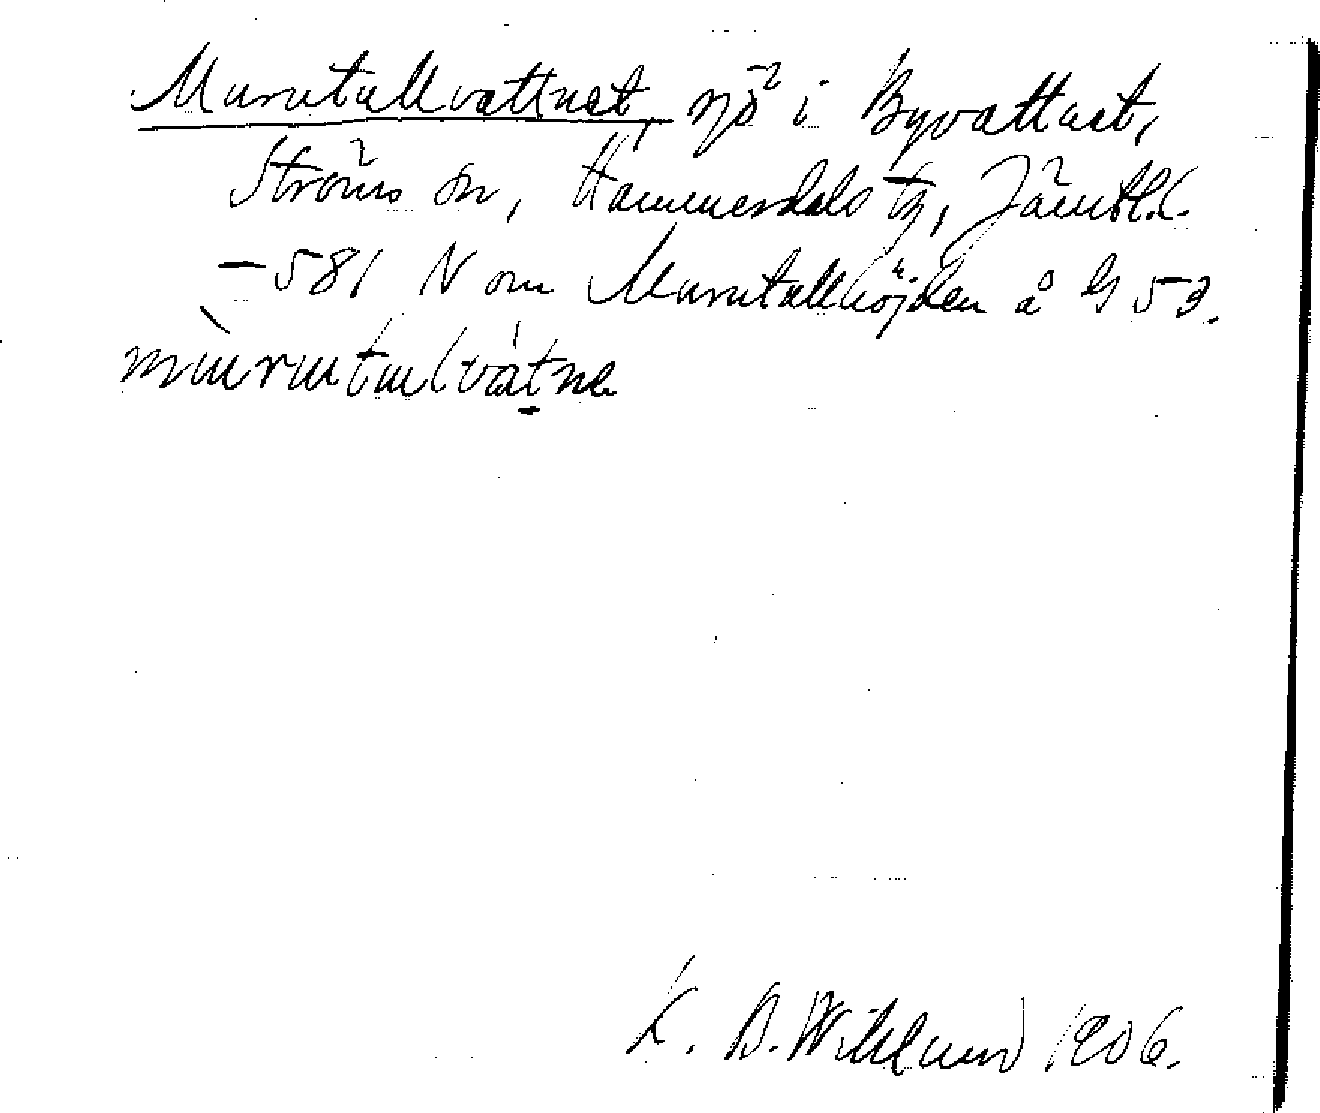 Murutallvattnet, sjö i Byvattnet,
Ströms sn, Hammerdals tg, Jämtl.l.
– 581 N om Murutallhöjden å G 53.
K. B. Wiklund 1906.